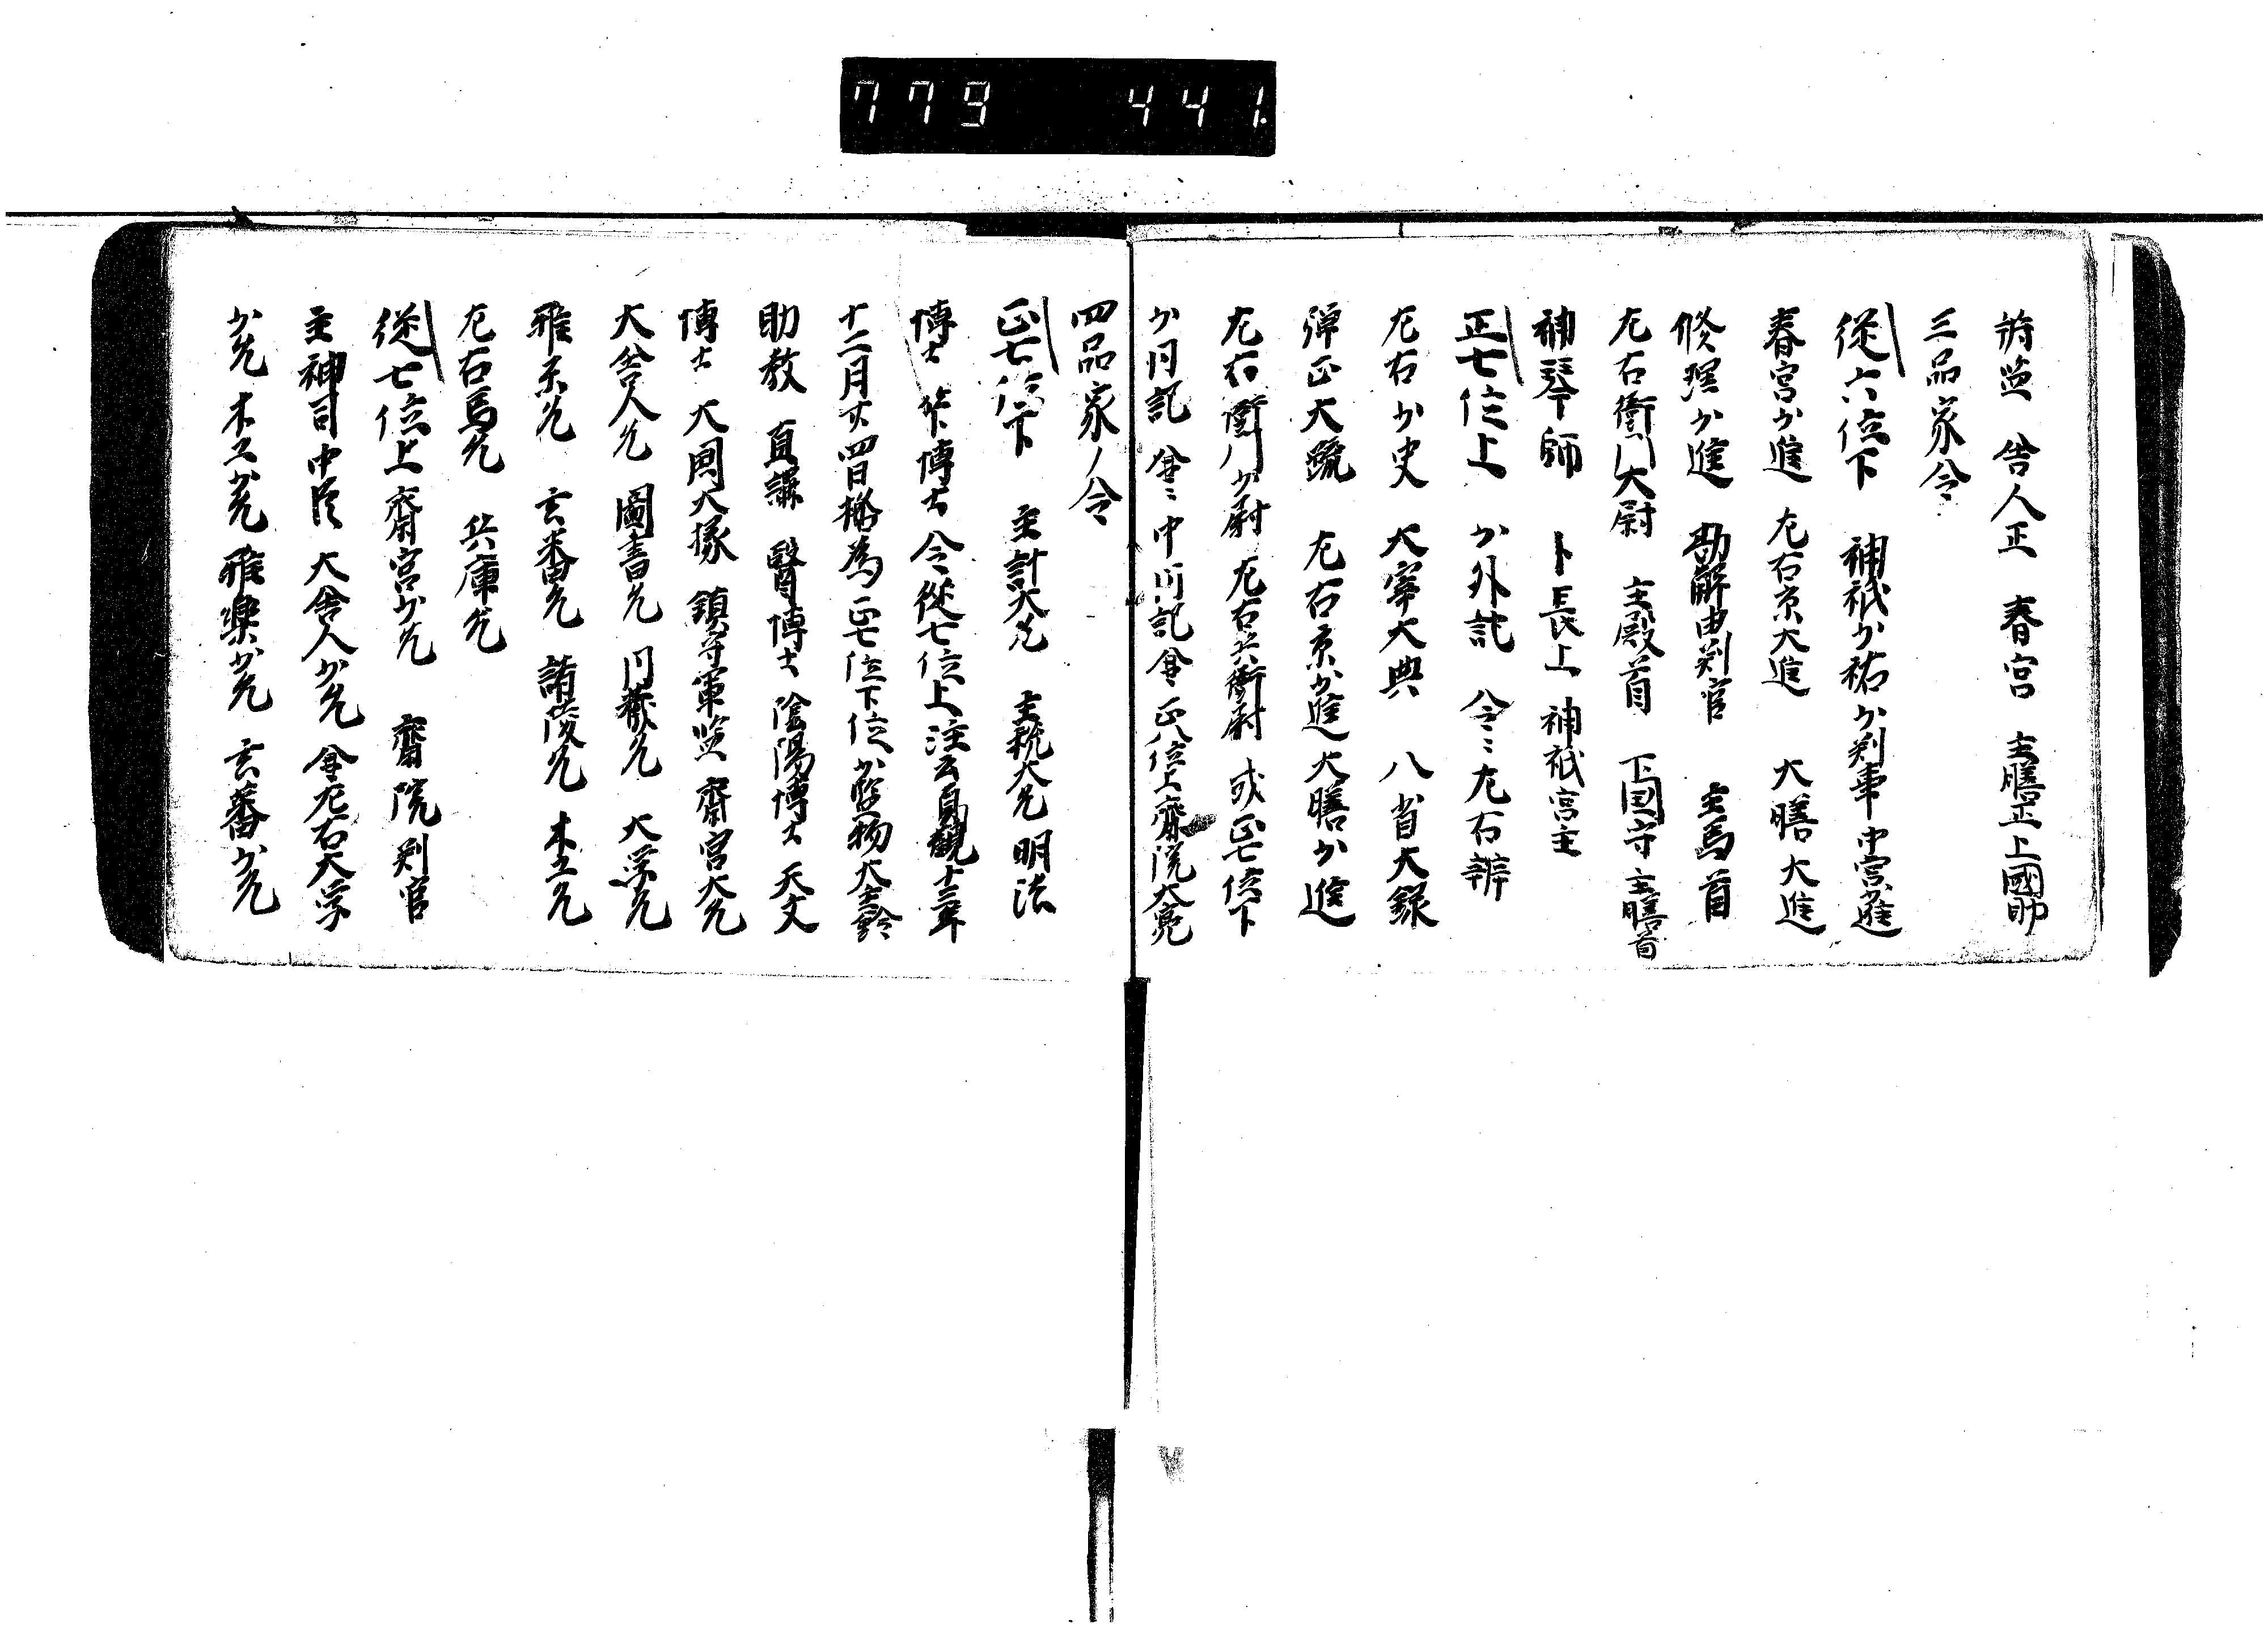 779 441.
将監 舎人正 春宮 主膳正 上國助
三品家令
従六位下 神祇少祐 少判事 中宮少進
春宮少進 左右京大進 大膳大進
修理少進 勘解由判官 主馬首
左右衛門大尉 主殿首 下国守 主膳首
神琴師 卜長上 神祇宮主
正七位上 少外記 令〻左右辨
左右少史 大宰大典 八省大録
弾正大疏 左右京少進 大膳少進
左右衛門少尉 左右兵衛尉 或正七位下
少内記 令〻中内記令正八位上 齋院大
四品家令
正七位下 主計大允 主税大允 明法
博士 博士 令従七位上注云貞観十三年
十二月廿四日格為正七位下位 少監物 大主鈴
助教 直講 醫博士 陰陽博士 天文
博士 大国大掾 鎮守軍監 齋宮大允
大舎人允 圖書允 内蔵允 大学允
雅樂允 玄番允 諸陵允 木工允
左右馬允 兵庫允
従七位上 齋宮少允 齋院判官
主神司中臣 大舎人少允 令左右大学
少允 木工少允 雅樂少允 玄蕃少允